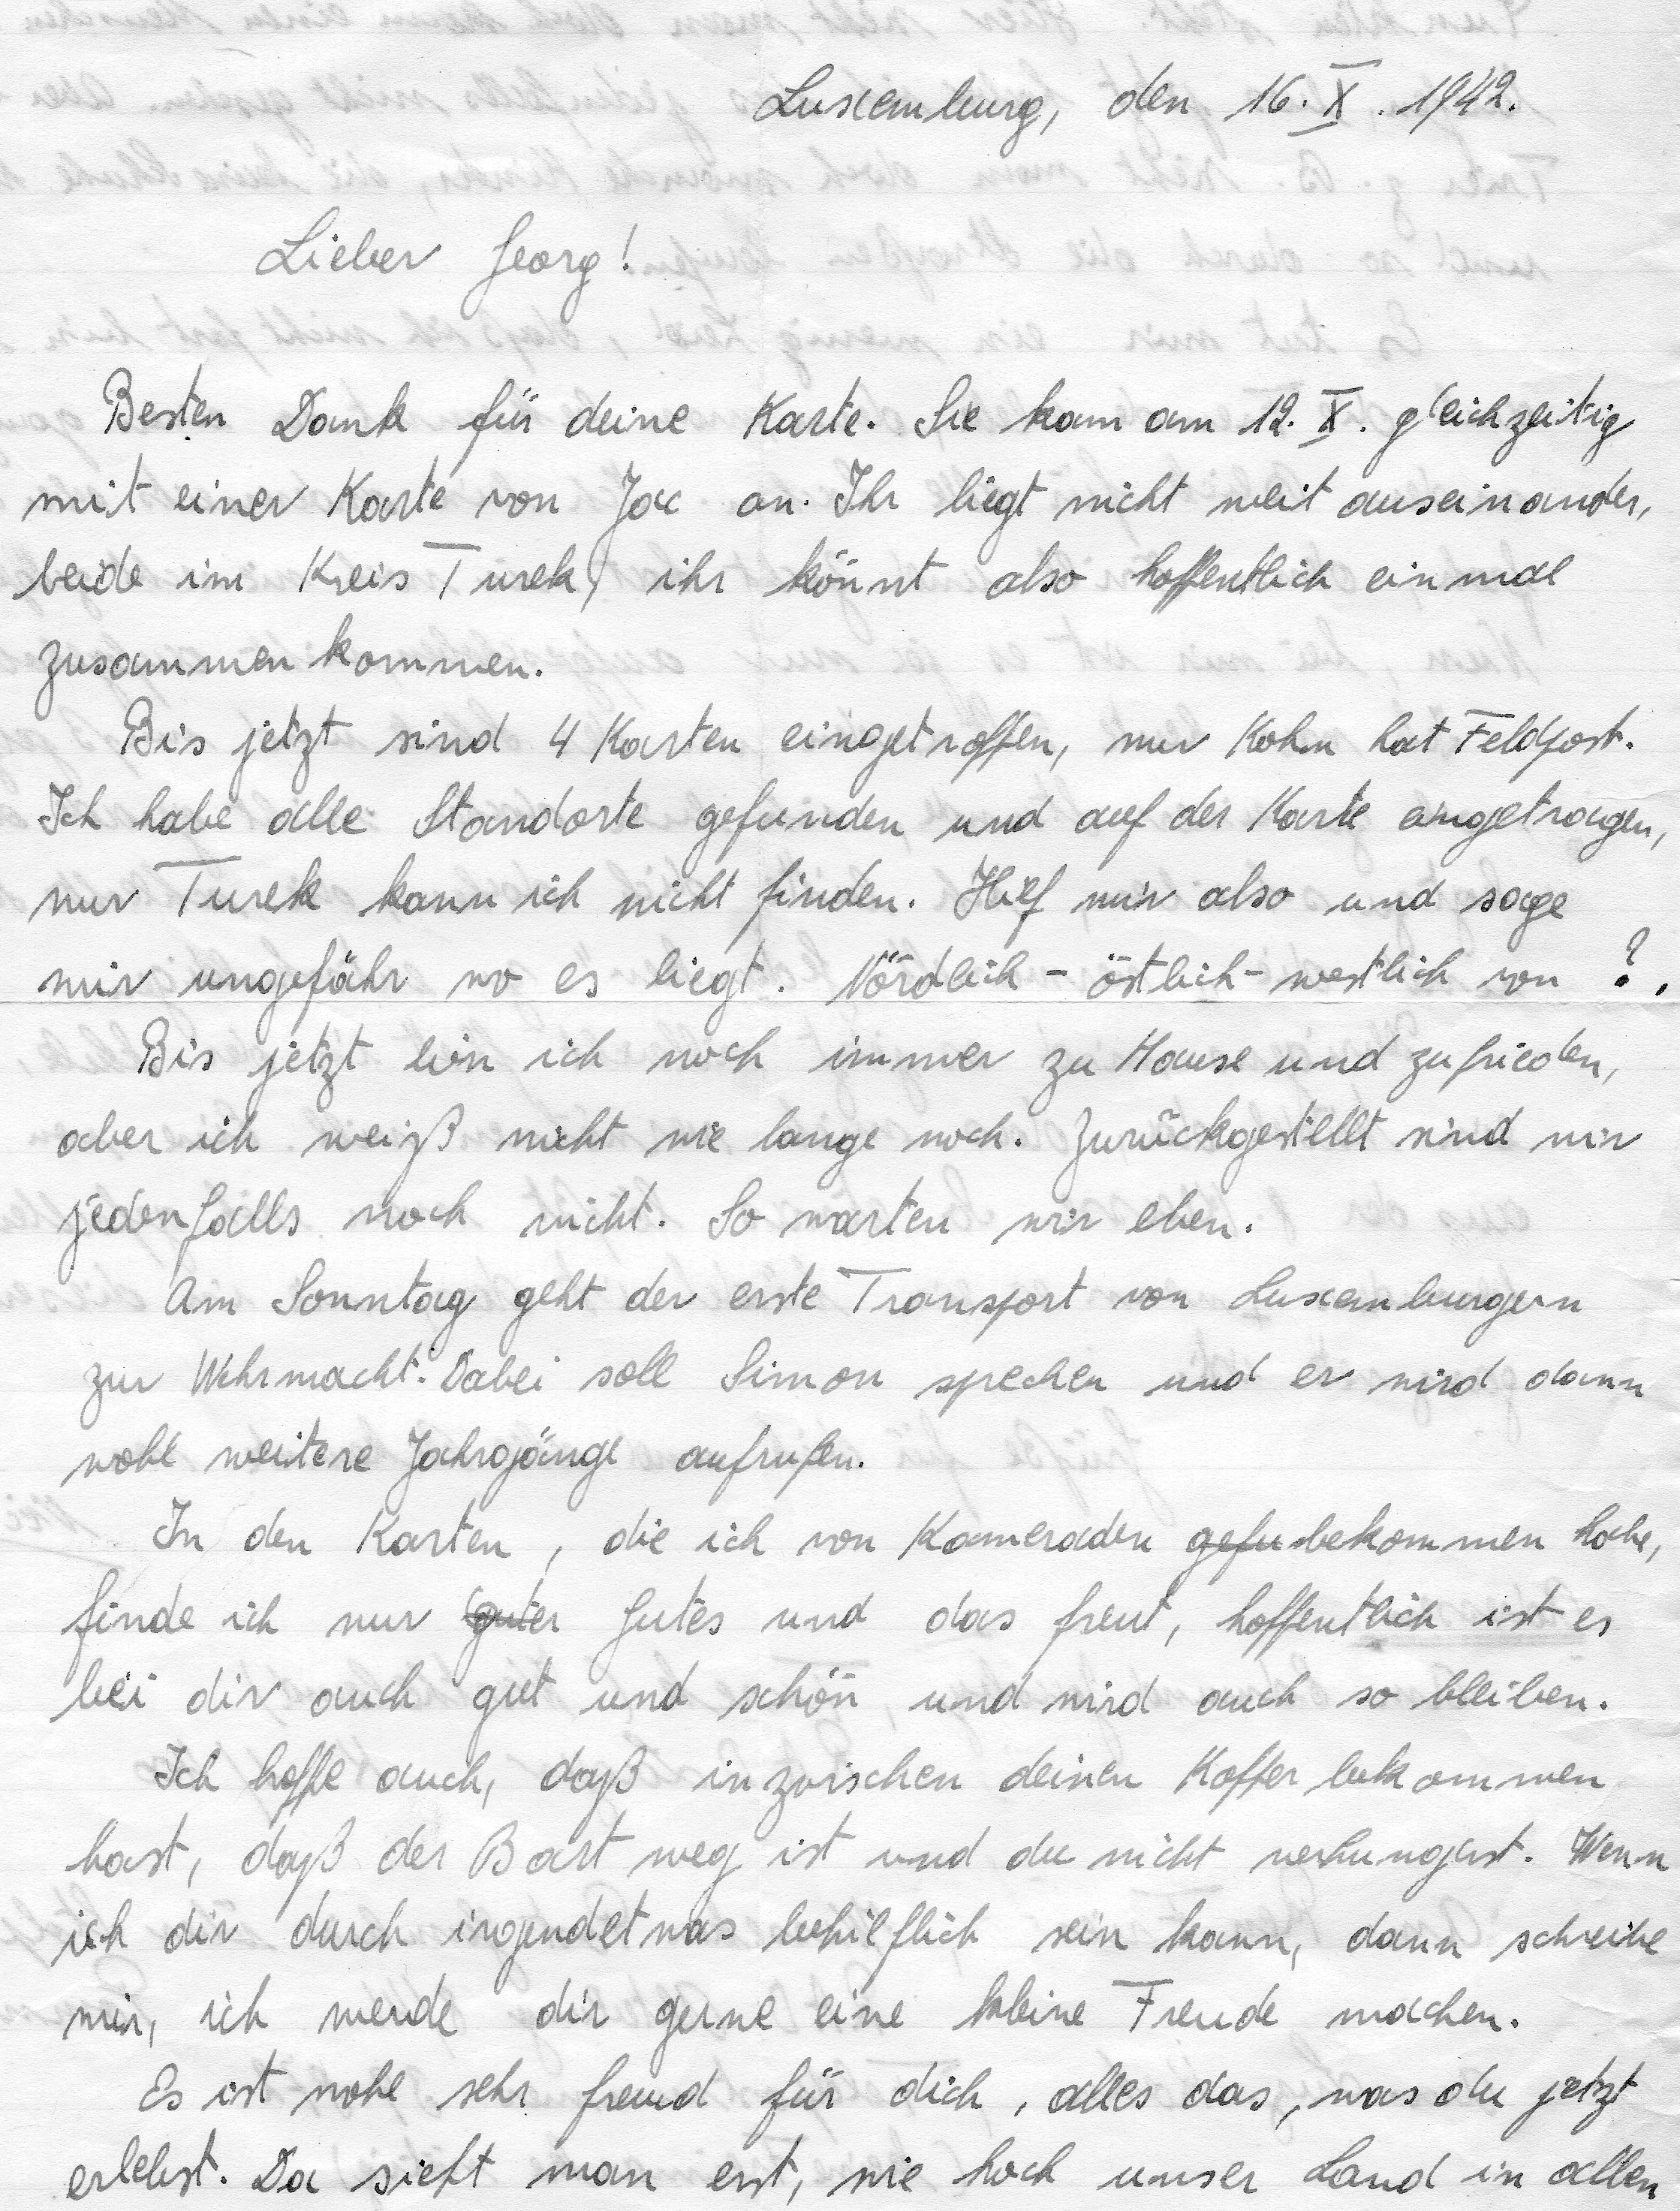 Luxemburg, den 16. X. 1942.
Lieber Georg!
Besten Dank für deine Karte. Sie kam am 12. X. gleichzeitig
mit einer Karte von Jac an. Ihr liegt nicht weit auseinander,
beide im Kreis Turek, ihr könnt also hoffentlich einmal
zusammenkommen.
Bis jetzt sind 4 Karten eingetroffen, nur Kohn hat Feldpost.
Ich habe alle Standorte gefunden und auf der Karte eingetragen,
nur Turek kann ich nicht finden. Hilf mir also und sage
mir ungefähr wo es liegt. Nördlich - östlich - westlich von ?.
Bis jetzt bin ich noch immer zu Hause und zufrieden,
aber ich weiß nicht wie lange noch. Zurückgestellt sind wir
jedenfalls noch nicht. So warten wir eben.
Am Sonntag geht der erste Transport von Luxemburgern
zur Wehrmacht. Dabei soll Simon sprechen und er wird dann
wohl weitere Jahrgänge aufrufen.
In den Karten, die ich von Kameraden gefu bekommen habe,
finde ich nur guter Gutes und das freut, hoffentlich ist es
bei dir auch gut und schön und wird auch so bleiben.
Ich hoffe auch, daß inzwischen deinen Koffer bekommen
hast, daß der Bart weg ist und du nicht verhungerst. Wenn
ich dir durch irgendetwas behilflich sein kann, dann schreibe
mir, ich werde dir gerne eine kleine Freude machen.
Es ist wohl sehr fremd für dich, alles das, was du jetzt
erlebst. Da sieht man erst, wie hoch unser Land in allen